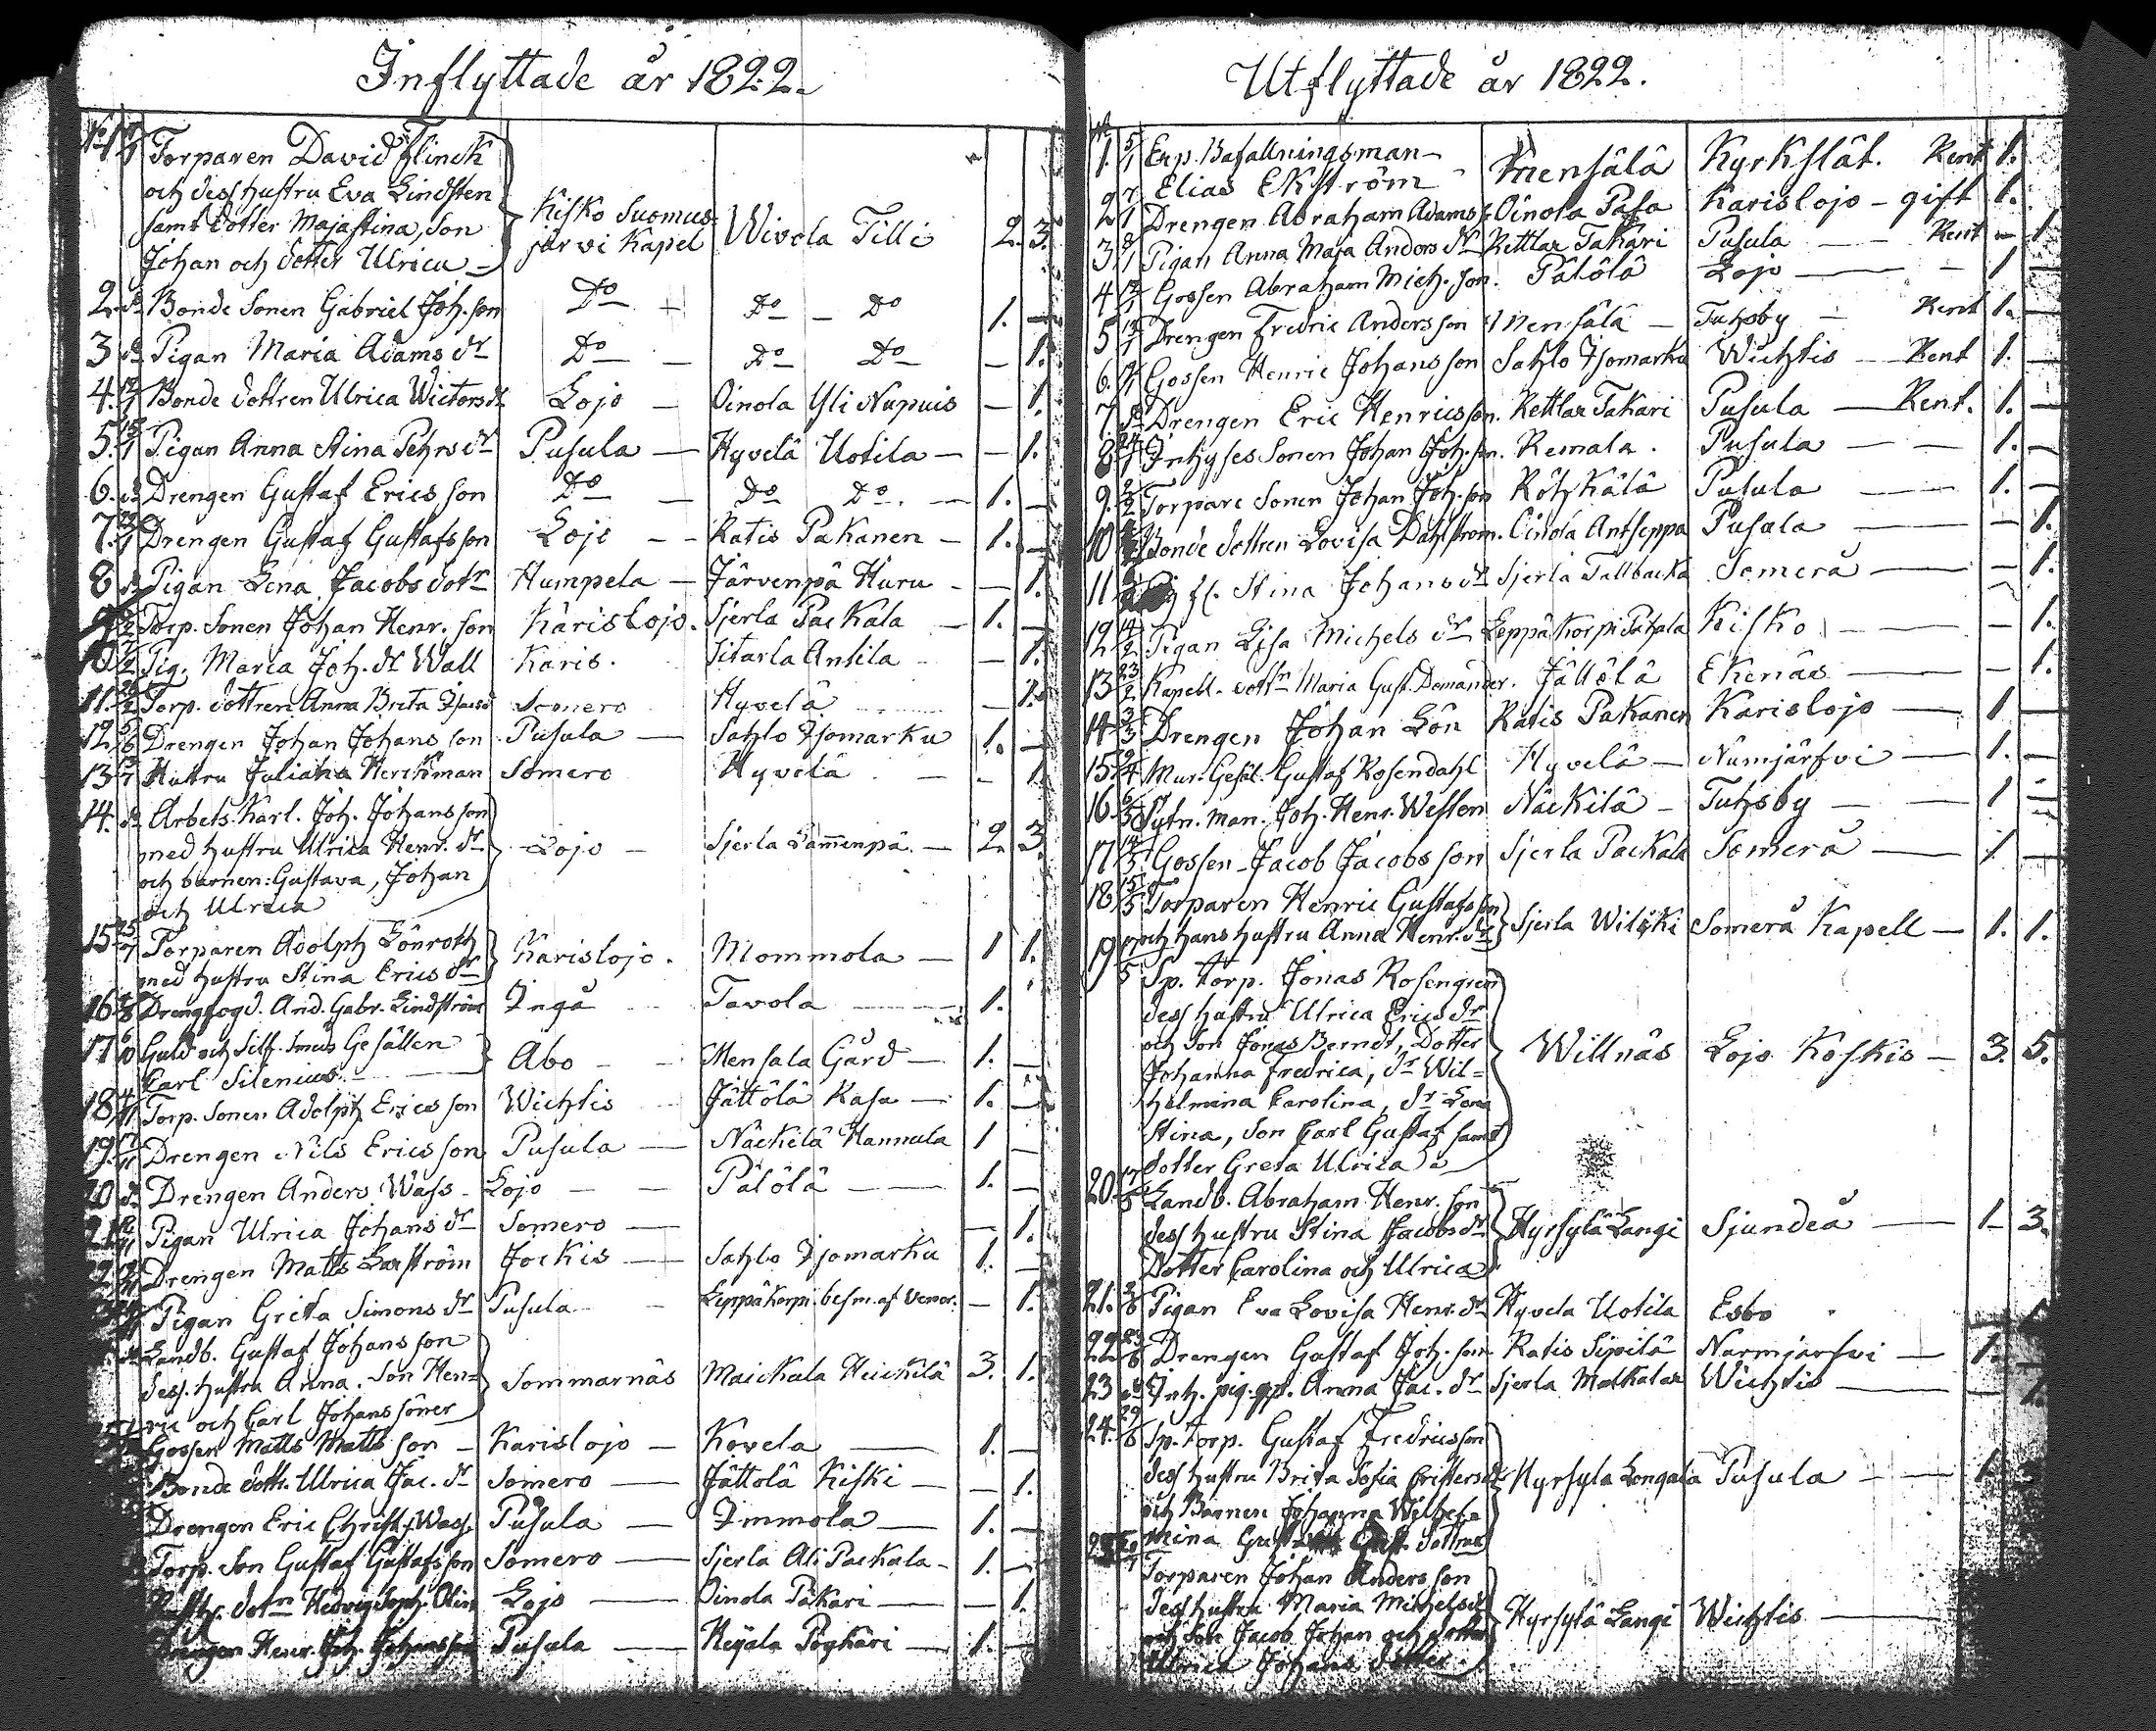 Inflyttade år 1822.
No 1 Torparen David Flinck
och dess hustru Eva Lindsten
samt dotter Majastina, Son
Johan och dotter Ulrica
Kisko Suomus-
järvi Kapel
Wivola Tilli 2. 3.
2. do Bonde Sonen Gabriel Joh. son Do Do Do 1. —
3 do Pigan Maria Adams dr Do — Do Do — 1.
4. Bonde dottren Ulrica Victors dr Lojo — Oinola Yli Nupuis — 1.
5. Pigan Anna Stina Pehrs dr Pusula — Hyvelä Uotila — — 1.
6. do Drengen Gustaf Ericsson Do — Do Do. — 1. —
7. Drengen Gustaf Gustafsson Lojo — — Ratis Pakanen — 1. —
8 do Pigan Lena Jacobs dotr Humpela — Järvenpä Huru — — 1.
9 Torp. Sonen Johan Henr. son Karislojo. Sjerla Packala — 1. —
10 Pig. Maria Joh. dr Wall Karis. Sitarla Antila — 1.
11. Torp. dottren Anna Brita Somero Hyvelä — 1.
12 Drengen Johan Johansson Pusula — Sahlo Isomarku 1. —
13 Hustru Juliana Herckman Somero Hyvelä — — 1.
14. do Arbets Karl. Joh. Johansson
med hustru Ulrica Henr. dr
och barnen: Gustava, Johan
och Ulrica
Lojo — Sjerla Lammenpä. — 2 3.
15 25/7 Torparen Adolph Lönroth
med hustru Stina Erics dr
Karislojo. Mommola — 1 1.
16 Drengfogd. And. Gabr. Lindström Ingå Tavola — 1.
17 Guld och Silf. Smids Gesällen
Carl Silenius
Åbo — Mensala Gård — 1. —
18 Torp. Sonen Adolph Ericsson Wichtis Jättölä Kasa — 1. —
19. Drengen Nils Ericsson Pusula — Näckilä Hannula 1 —
20 do Drengen Anders Wass — Lojo — — Pälölä — 1. —
21 Pigan Ulrica Johans dr Somero — — 1.
Drengen Matts Jockis — Sahlo Isomarku 1. —
Pigan Greta Simons dr Pusula — Leppäkorpi — 1.
Landb. Gustaf Johansson
dess. hustru Anna. Son Hen=
ric och Carl Johans söner
Sommarnäs Maickala Heickilä 3. 1.
Gossen Matts Mattsson — Karislojo — Kovela — 1. —
Bonde dottr. Ulrica Jac. dr Somero — Jättölä Kiski — — 1.
Drengen Eric Christ. Wass. Pusula — Immola — 1. —
Torp. Son Gustaf Gustafsson Somero — Sjerla Ali Packala — 1. —
dotrn Hedvig Soph. Olin Lojo — Oinola Päkari — — 1.
Drengen Henr. Joh. Johansson Pusula — 1. —
Utflyttade år 1822.
1. 5/1 Exp. Befallningsman —
Elias Ekström
Mensälä Kyrkslät. Rent 1.
2 7/1 Drengen Abraham Adams s. Oinola Pasa Karislojo — gift 1.
3 8/1 Pigan Anna Maja Anders dr Kettlax Takari Pusula — — Rent — 1
4 12/1 Gossen Abraham Mich. son. Pälölä Lojo — — 1 —
5 13/1 Drengen Fredric Andersson Mensälä — Tuhsby — Rent 1. —
6. Gossen Henric Johansson Sahlo Isomarku Wichtis — Rent 1. —
7. do Drengen Eric Henricsson. Kettlax Takari Pusula — Rent. 1. —
8 Inhyses Sonen Johan Joh. son. Remala. Pusula — — 1. —
9. 2/2 Torpare Sonen Johan Joh. son Röhkälä Pusula — 1. —
10 Bonde dottren Lovisa Dahlström. Oinola Antseppa Pusula — — 1.
11 Stina Johans dr Sjerla Tallbacka Somerå — — 1.
12 14/2 Pigan Lisa Michels dr Leppäkorpi Kisko — — 1.
13 23/2 Kapell. dottrn Maria Gust. Domander. Jättölä Ekenäs — — 1.
14 3/3 Drengen Johan Lön Ratis Pakanen Karislojo — 1 —
15 2/4 Mur. Gesäl. Gustaf Rosendahl Hyvelä — Numjärfvi — 1. —
16. Joh. Henr. Westen Näckilä — Tuhsby — — 1 —
17 14/5 Gossen Jacob Jacobsson Sjerla Packala Somerå — 1 —
18 15/5 Torparen Henric Gustafsson
och hans hustru Anna Henr. dr
Sjerla Wilski Somerå Kapell — 1. 1.
19 17/5 Sp. Torp. Jonas Rosengren
dess hustru Ulrica Erics dr
och Son Jonas Berndt, Dotter
Johanna Fredrica, dr Wil=
helmina Carolina, dr Lena
Stina, Son Carl Gustaf samt
dotter Greta Ulrica
Willnäs Lojo Koskis — 3. 5.
20. 17/5 Landb. Abraham Henr. son
dess hustru Stina Jacobs dr
Dotter Carolina och Ulrica
Hyrsylä Langi Sjundeå — 1 — 3.
21. Pigan Eva Lovisa Henr. dr Hyvela Uotila Esbo — 1.
22 Drengen Gustaf Joh. son Ratis Sipilä Narmjärfvi — 1.
23 do Inh. pig. Anna Jac. dr Sjerla Matkalax Wichtis — 1.
24. 29/6 Sp. Torp. Gustaf Fredricsson
dess hustru Brita Sofia
och Barnen Johanna Wilhel
mina
Hyrsyla Pusula — — 1
Torparen Johan Andersson
dess hustru Maria Michelsdr
och Son Jacob Johan och dotter
Ulrica Johans dotter
Hyrsylä Langi Wichtis —